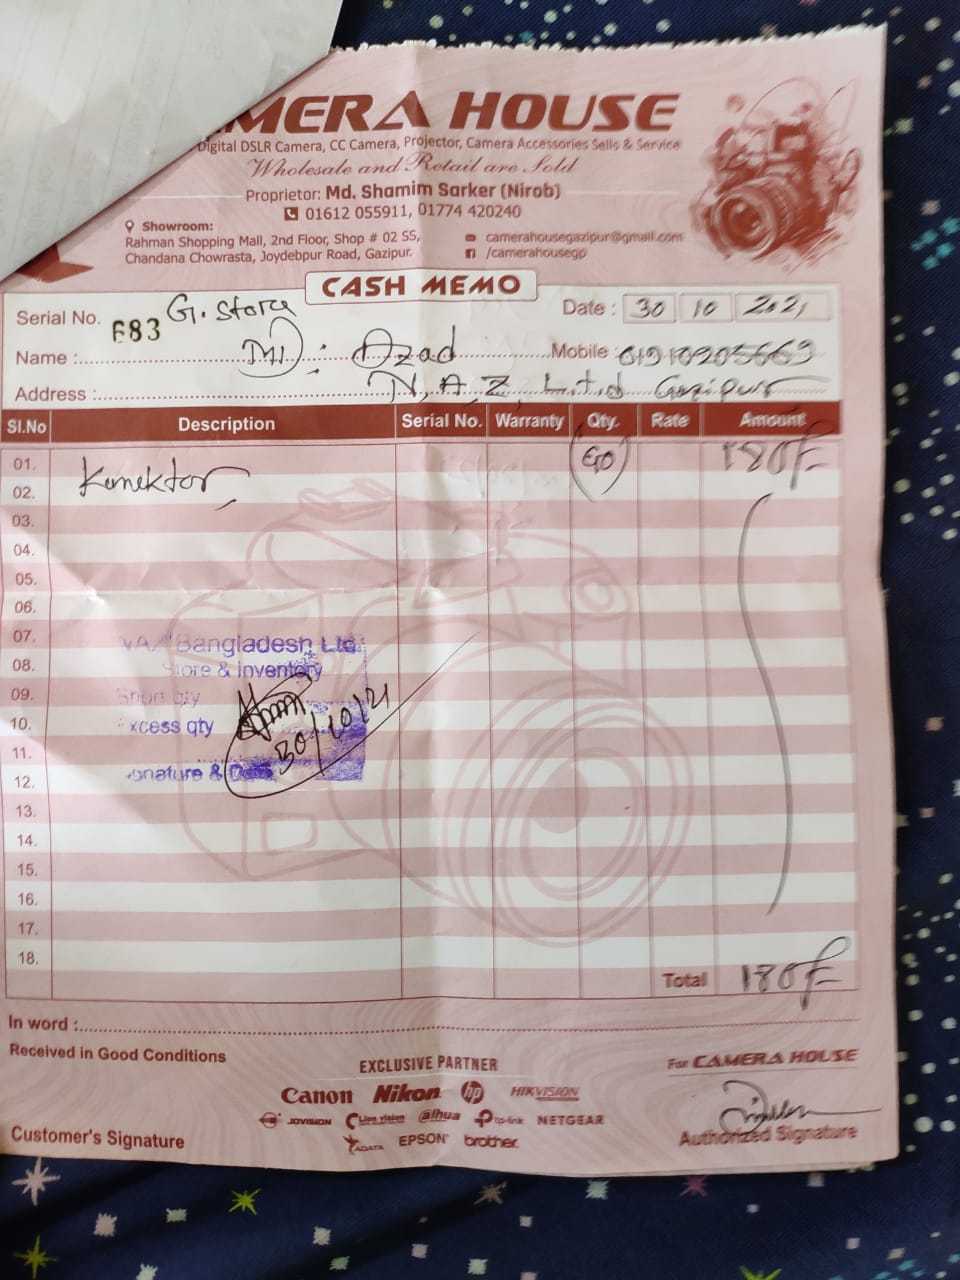 MERA HOUSE
Digital DSLR Camera, CC Camera, Projector, Camera Accessories Sells & Service
Wholesale and Retail are Sold
Proprietor: Md. Shamim Sarker (Nirob)
01612 055911, 01774 420240
Showroom:
Rahman Shopping Mall, 2nd Floor, Shop # 02 SS,
Chandana Chowrasta, Joydebpur Road, Gazipur.
camerahousegazipur@gmail.com
/camerahousegp
CASH MEMO
Serial No. 683 G. Store Date : 30 10 2021
Name : MD : Azad Mobile : 01910205669
Address : N.A.Z. Ltd Gazipur
Sl.No Description Serial No. Warranty Qty. Rate Amount
01. Konektor 60 180/-
02.
03.
04.
05.
06.
07.
08.
09.
10.
11.
12.
13.
14.
15.
16.
17.
18.
Bangladesh Ltd.
Store & Inventory
Short qty
Excess qty
30/10/21
Signature & Date
Total 180/-
In word :
Received in Good Conditions
EXCLUSIVE PARTNER
For CAMERA HOUSE
Canon Nikon hp HIKVISION
JOVISION Lion vision alhua tp-link NETGEAR
ADATA EPSON brother.
Customer's Signature
Authorized Signature